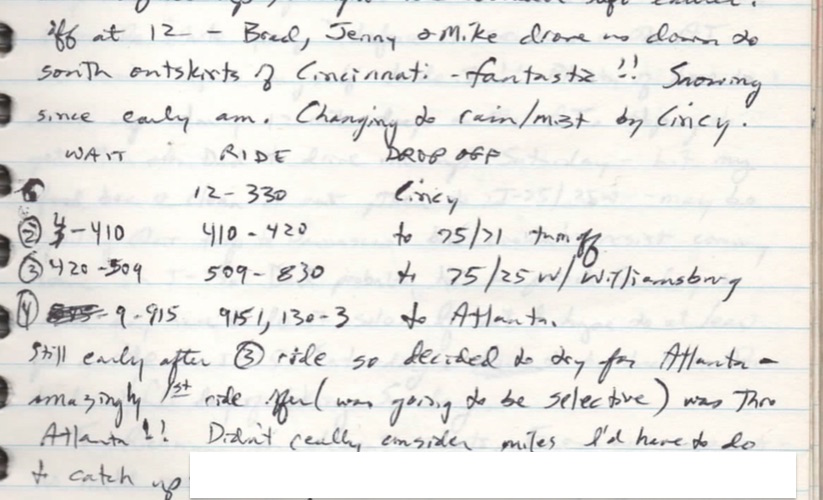 off at 12 - Brad, Jenny & Mike drove us down to
south outskirts of Cincinnati - fantastic !! Snowing
since early am. Changing to rain/mist by Cincy.
WAIT RIDE DROP OFF
12-330 Cincy
② -410 410-420 to 75/71 turnoff
③ 420-509 509-830 to 75/25 W/ Williamsburg
④ 9-915 to Atlanta.
Still early after ③ ride so decided to try for Atlanta -
amazingly 1st ride offer (was going to be selective) was thru
Atlanta !! Didn't really consider miles I'd have to do
to catch up